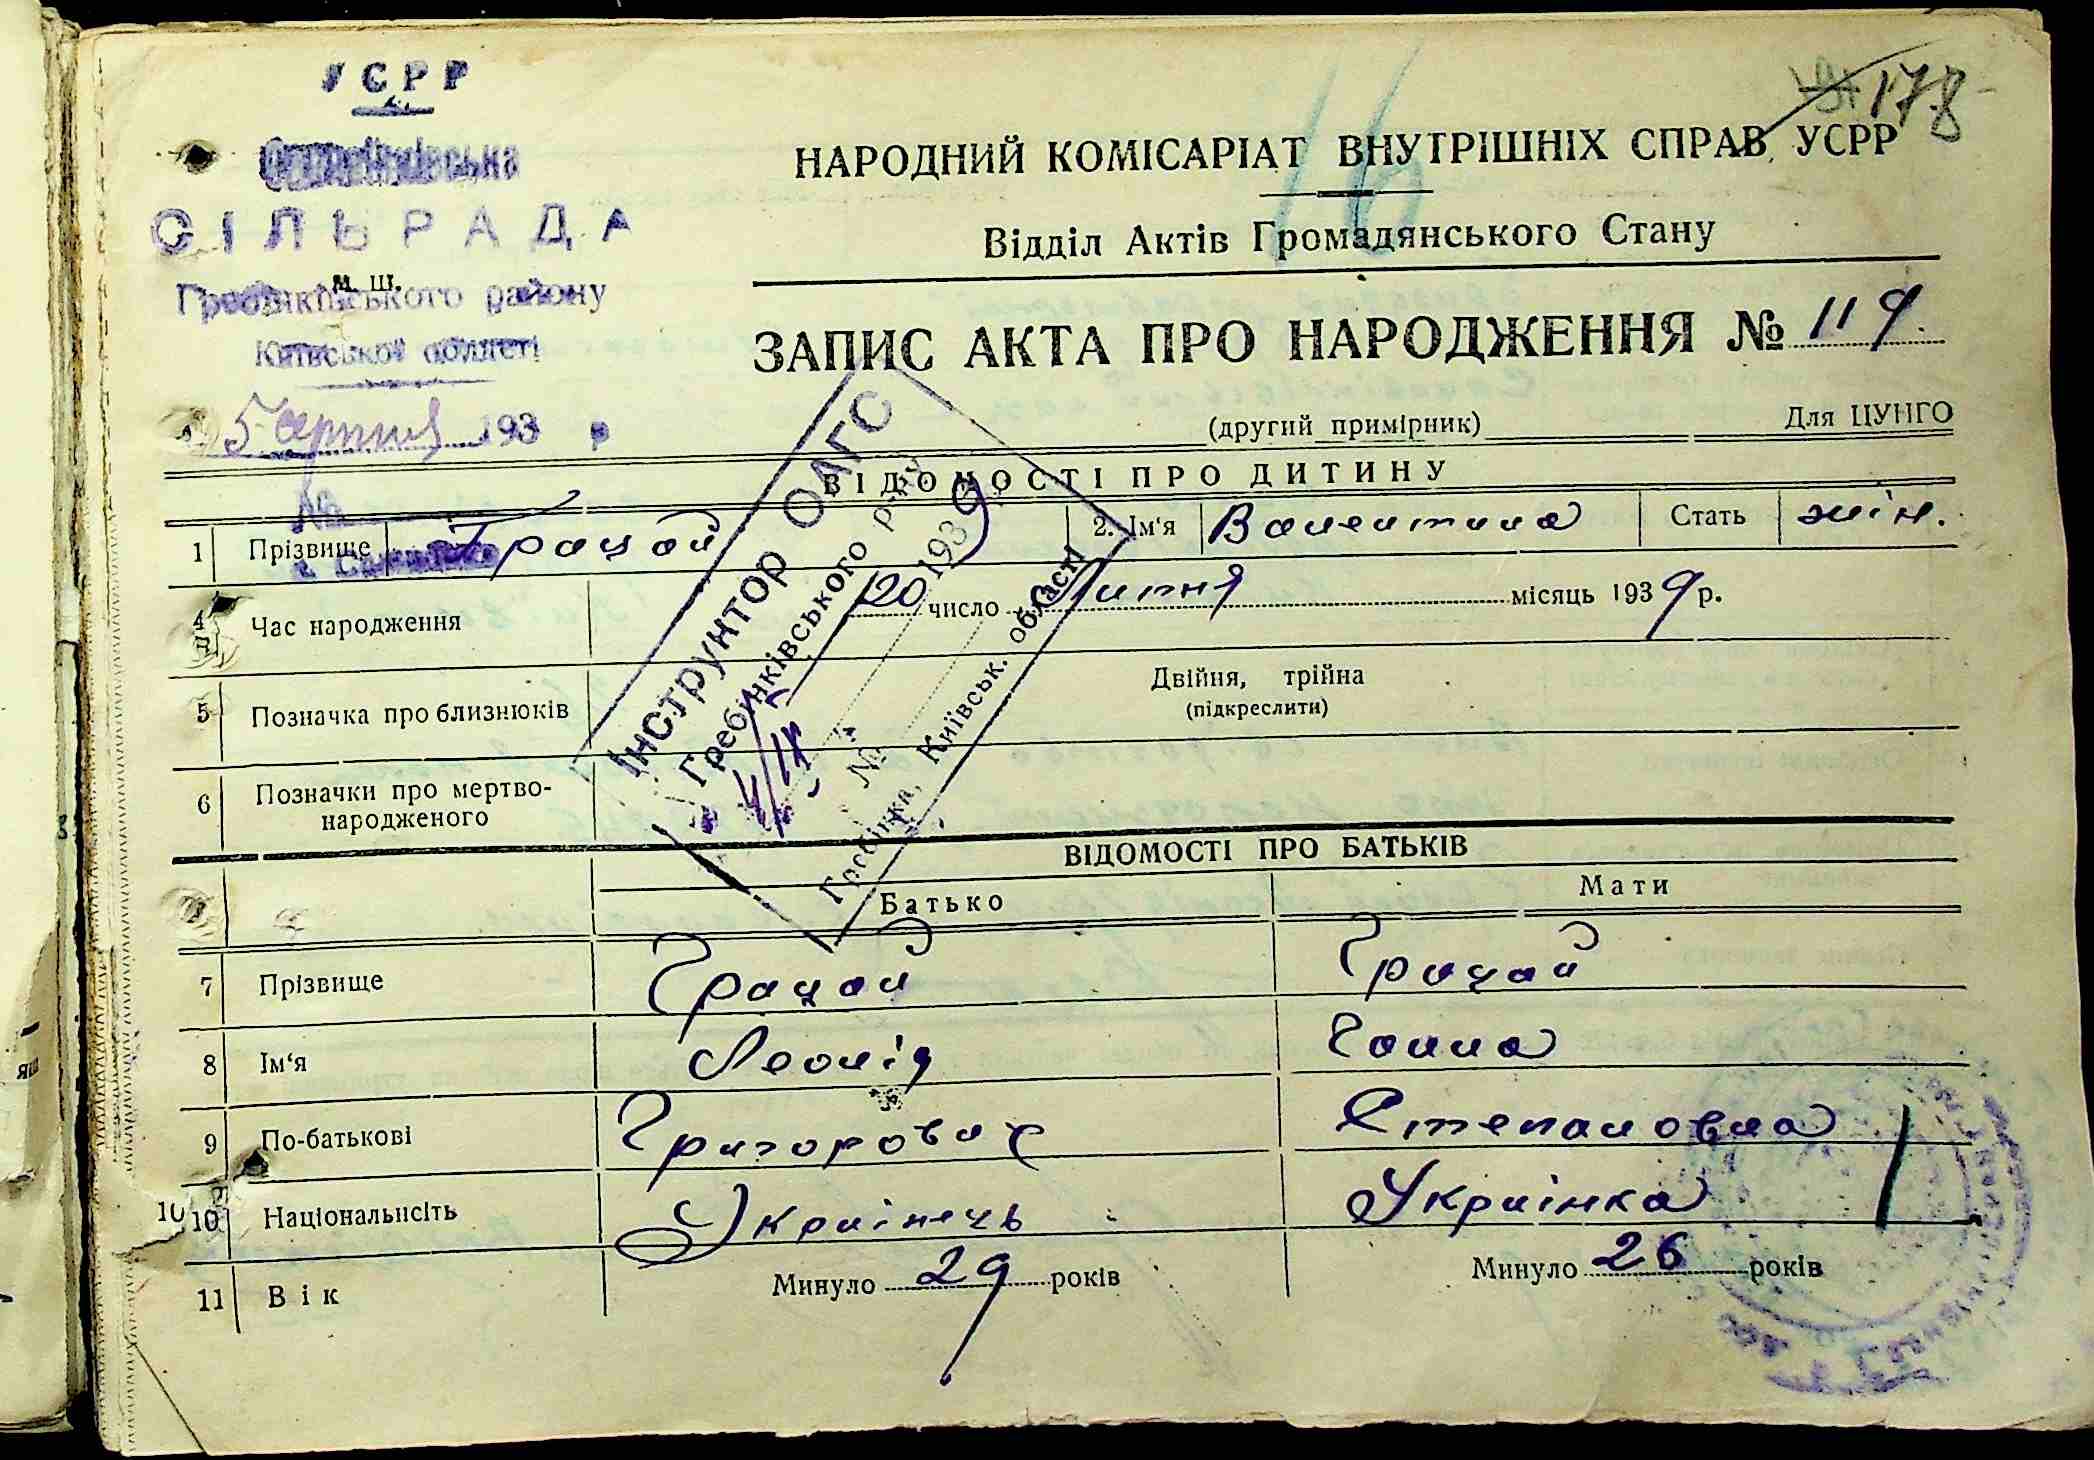 УСРР
СІЛЬРАДА
м. ш.
Гребінківського району
Київської області
5 серпня 193 р
№
178
НАРОДНИЙ КОМІСАРІАТ ВНУТРІШНІХ СПРАВ УСРР
16
Відділ Актів Громадянського Стану
ЗАПИС АКТА ПРО НАРОДЖЕННЯ № 119
(другий примірник) Для ЦУНГО
ВІДОМОСТІ ПРО ДИТИНУ
1 Прізвище Грацай 2. Ім'я Валентина Стать жін.
4 Час народження 20 число Липня місяць 1939 р.
5 Позначка про близнюків Двійня, трійна
(підкреслити)
6 Позначки про мертво-
народженого
Інструктор ОАГС
Гребінківського р-ну
1939
№
Гребінка, Київськ. області
ВІДОМОСТІ ПРО БАТЬКІВ
Батько Мати
7 Прізвище Грацай Грацай
8 Ім'я Леонід Ганна
9 По-батькові Григорович Степановна
10 10 Національнсіть Украінець Украінка
11 Вік Минуло 29 років Минуло 26 років